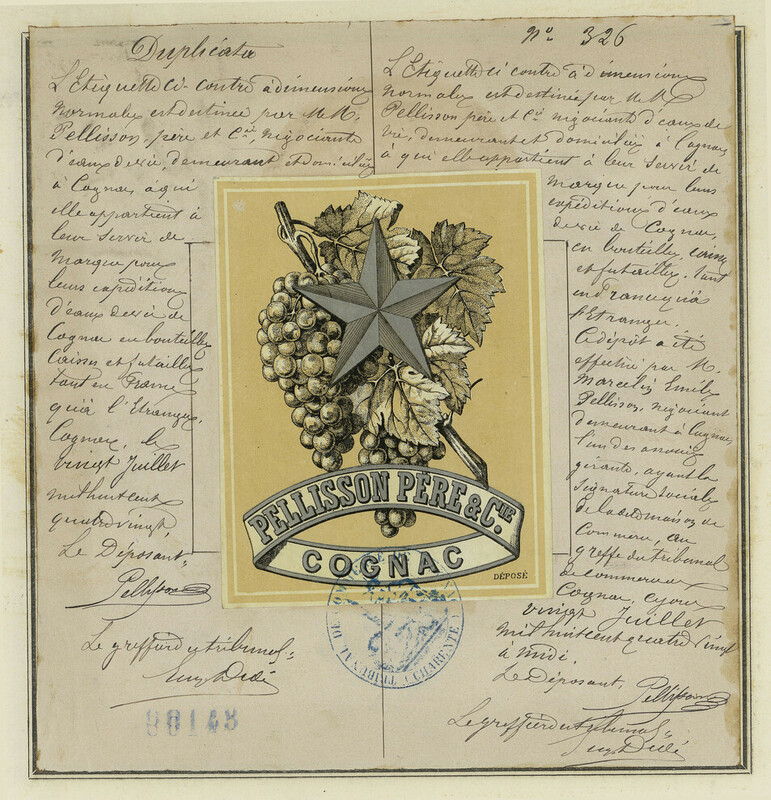 Duplicata
L'Etiquette ci-contre à dimensions
normales est destinée par M.M.
Pellisson père et Cie, négociants
d'eaux de vie, demeurant et domiciliés
à Cognac à qui
elle appartient à
leur servir de
marque pour
leurs expéditions
d'eaux de vie de
Cognac en bouteilles,
caisses et futailles
tant en France
qu'à l'Etranger.
Cognac, le
vingt Juillet
mil huit cent
quatre vingt.
Le Déposant
Pellisson
Le greffier du tribunal
90143
No 326
L'Etiquette ci contre à dimensions
normales est destinée par M.M.
Pellisson père et Cie négociants d'eaux de
vie, demeurant et domiciliés à Cognac
à qui elle appartient à leur servir de
marque pour leurs
expéditions d'eaux
de vie de Cognac,
en bouteilles, caisses
et futailles, tant
en France qu'à
l'Etranger.
Ce dépôt a été
effectué par M.
Marcelin Emile
Pellisson, négociant
demeurant à Cognac
l'un des associés
gérants, ayant la
signature sociale
de la dite maison de
Commerce, au
greffe du tribunal
de commerce de
Cognac, ce jour
vingt Juillet
mil huit cent quatre vingt
à midi.
Le Déposant,
Pellisson
Le greffier du tribunal
PELLISSON PERE & CIE
COGNAC
DÉPOSÉ
TRIBUNAL DE
CHARENTE